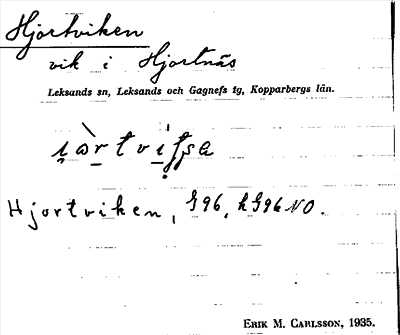 Hjortviken
vik i Hjortnäs
Leksands sn, Leksands och Gagnefs tg, Kopparbergs län.
Hjortviken, G96, k G96 NO.
ERIK M. CARLSSON, 1935.